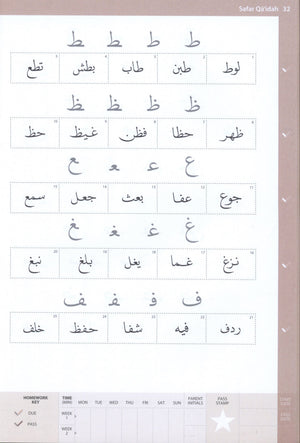 Safar Qāʿidah 32
ط ط ط ط
لوط طبن طاب بطش تطع
ظ ظ ظ ظ
ظهر حظا فظن غيظ حظ
ع ع ع ع
جوع عفا بعث جعل سمع
غ غ غ غ
نزغ غما يغل بلغ نبغ
ف ف ف ف
ردف فيه شفا حفظ خلف
HOMEWORK KEY TIME (MIN) MON TUE WED THU FRI SAT SUN PARENT INITIALS PASS STAMP START DATE
DUE WEEK 1
PASS WEEK 2